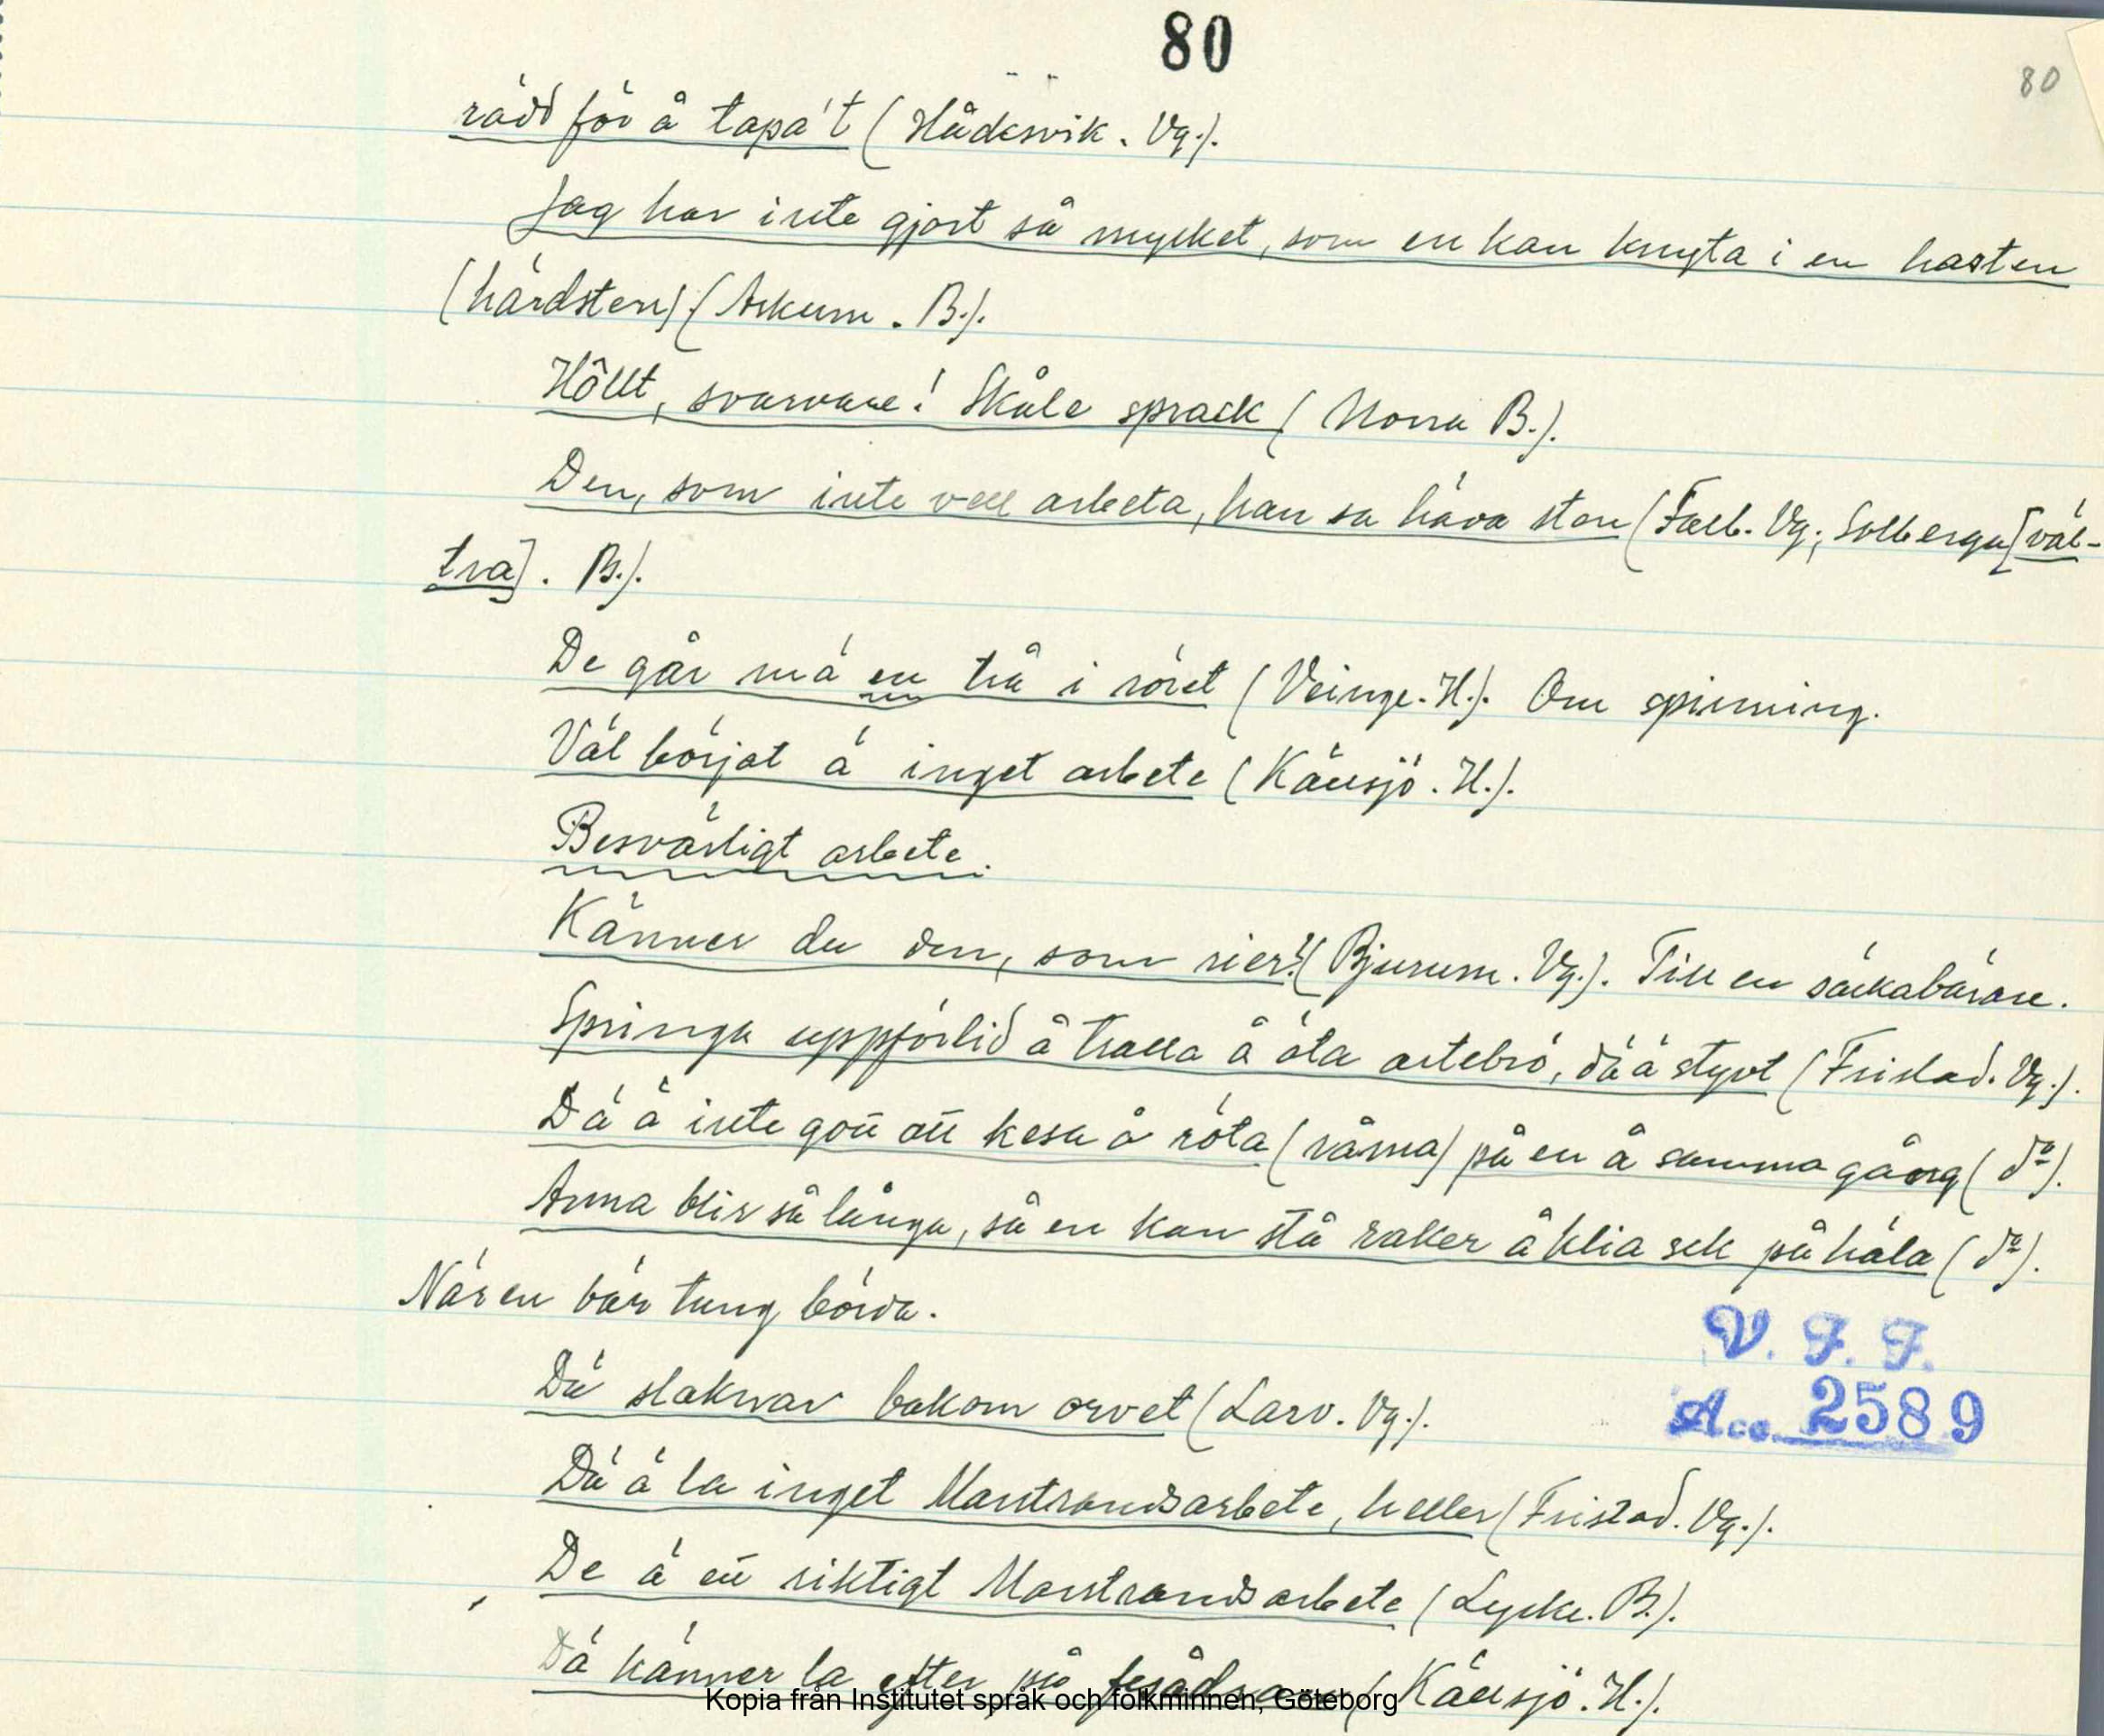 80
80
rädd för å tapa't (Hådesvik. Vg.).
Jag har inte gjort så mycket, som en kan knyta i en hasten
(härdsten) (Askum. B.).
Hôllt, svarvare! Skåle sprack (Norra B.).
Den, som inte vell arbeta, han sa häva sten (Falb. Vg.; Solberga [väl-
tra]. B.).
De går mä en trå i röret (Veinge. H.). Om spinning.
Väl börjat ä inget arbete (Källsjö. H.).
Besvärligt arbete.
Känner du den, som rier? (Bjurum. Vg.). Till en säckabärare.
Springa uppförlid å tralla å äta ärtebrö, dä ä styvt (Fristad. Vg.).
Dä ä inte gott att kesa å röta (råma) på en å samma gång (do).
Arma blir så långa, så en kan stå raker å klia sek på häla (do).
När en bär tung börda.
Dä slaknar bakom orvet (Larv. Vg.).
Dä ä la inget Marstrandsarbete, heller (Fristad. Vg.).
De ä ett riktigt Marstrandsarbete (Lycke. B.).
Dä känner la efter på (Källsjö. H.).
V. F. F.
Acc. 2589
Kopia från Institutet språk och folkminnen, Göteborg